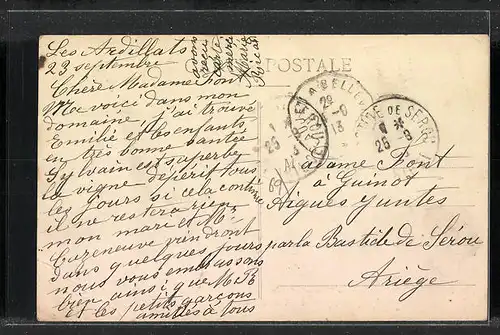 POSTALE
Les Ardillats
23 septembre
Chère Madame Font
Me voici dans mon
domaine, j'ai trouvé
Emilie et les enfants
en très bonne santé
Sylvain est superbe
la vigne dépérit tous
les jours si cela continue
il ne restera rien
mon mari et Mr
Cazeneuve viendront
dans quelques jours
nous vous embrassons
bien ainsi que M. B
et les petits garçons
amitiés à tous
avons
reçu
carte
merci
Madame Font
à Guinot
Aigues Juntes
par la Bastide de Sérou
Ariège
BELLEV
22
13
DE SEROU
25 9